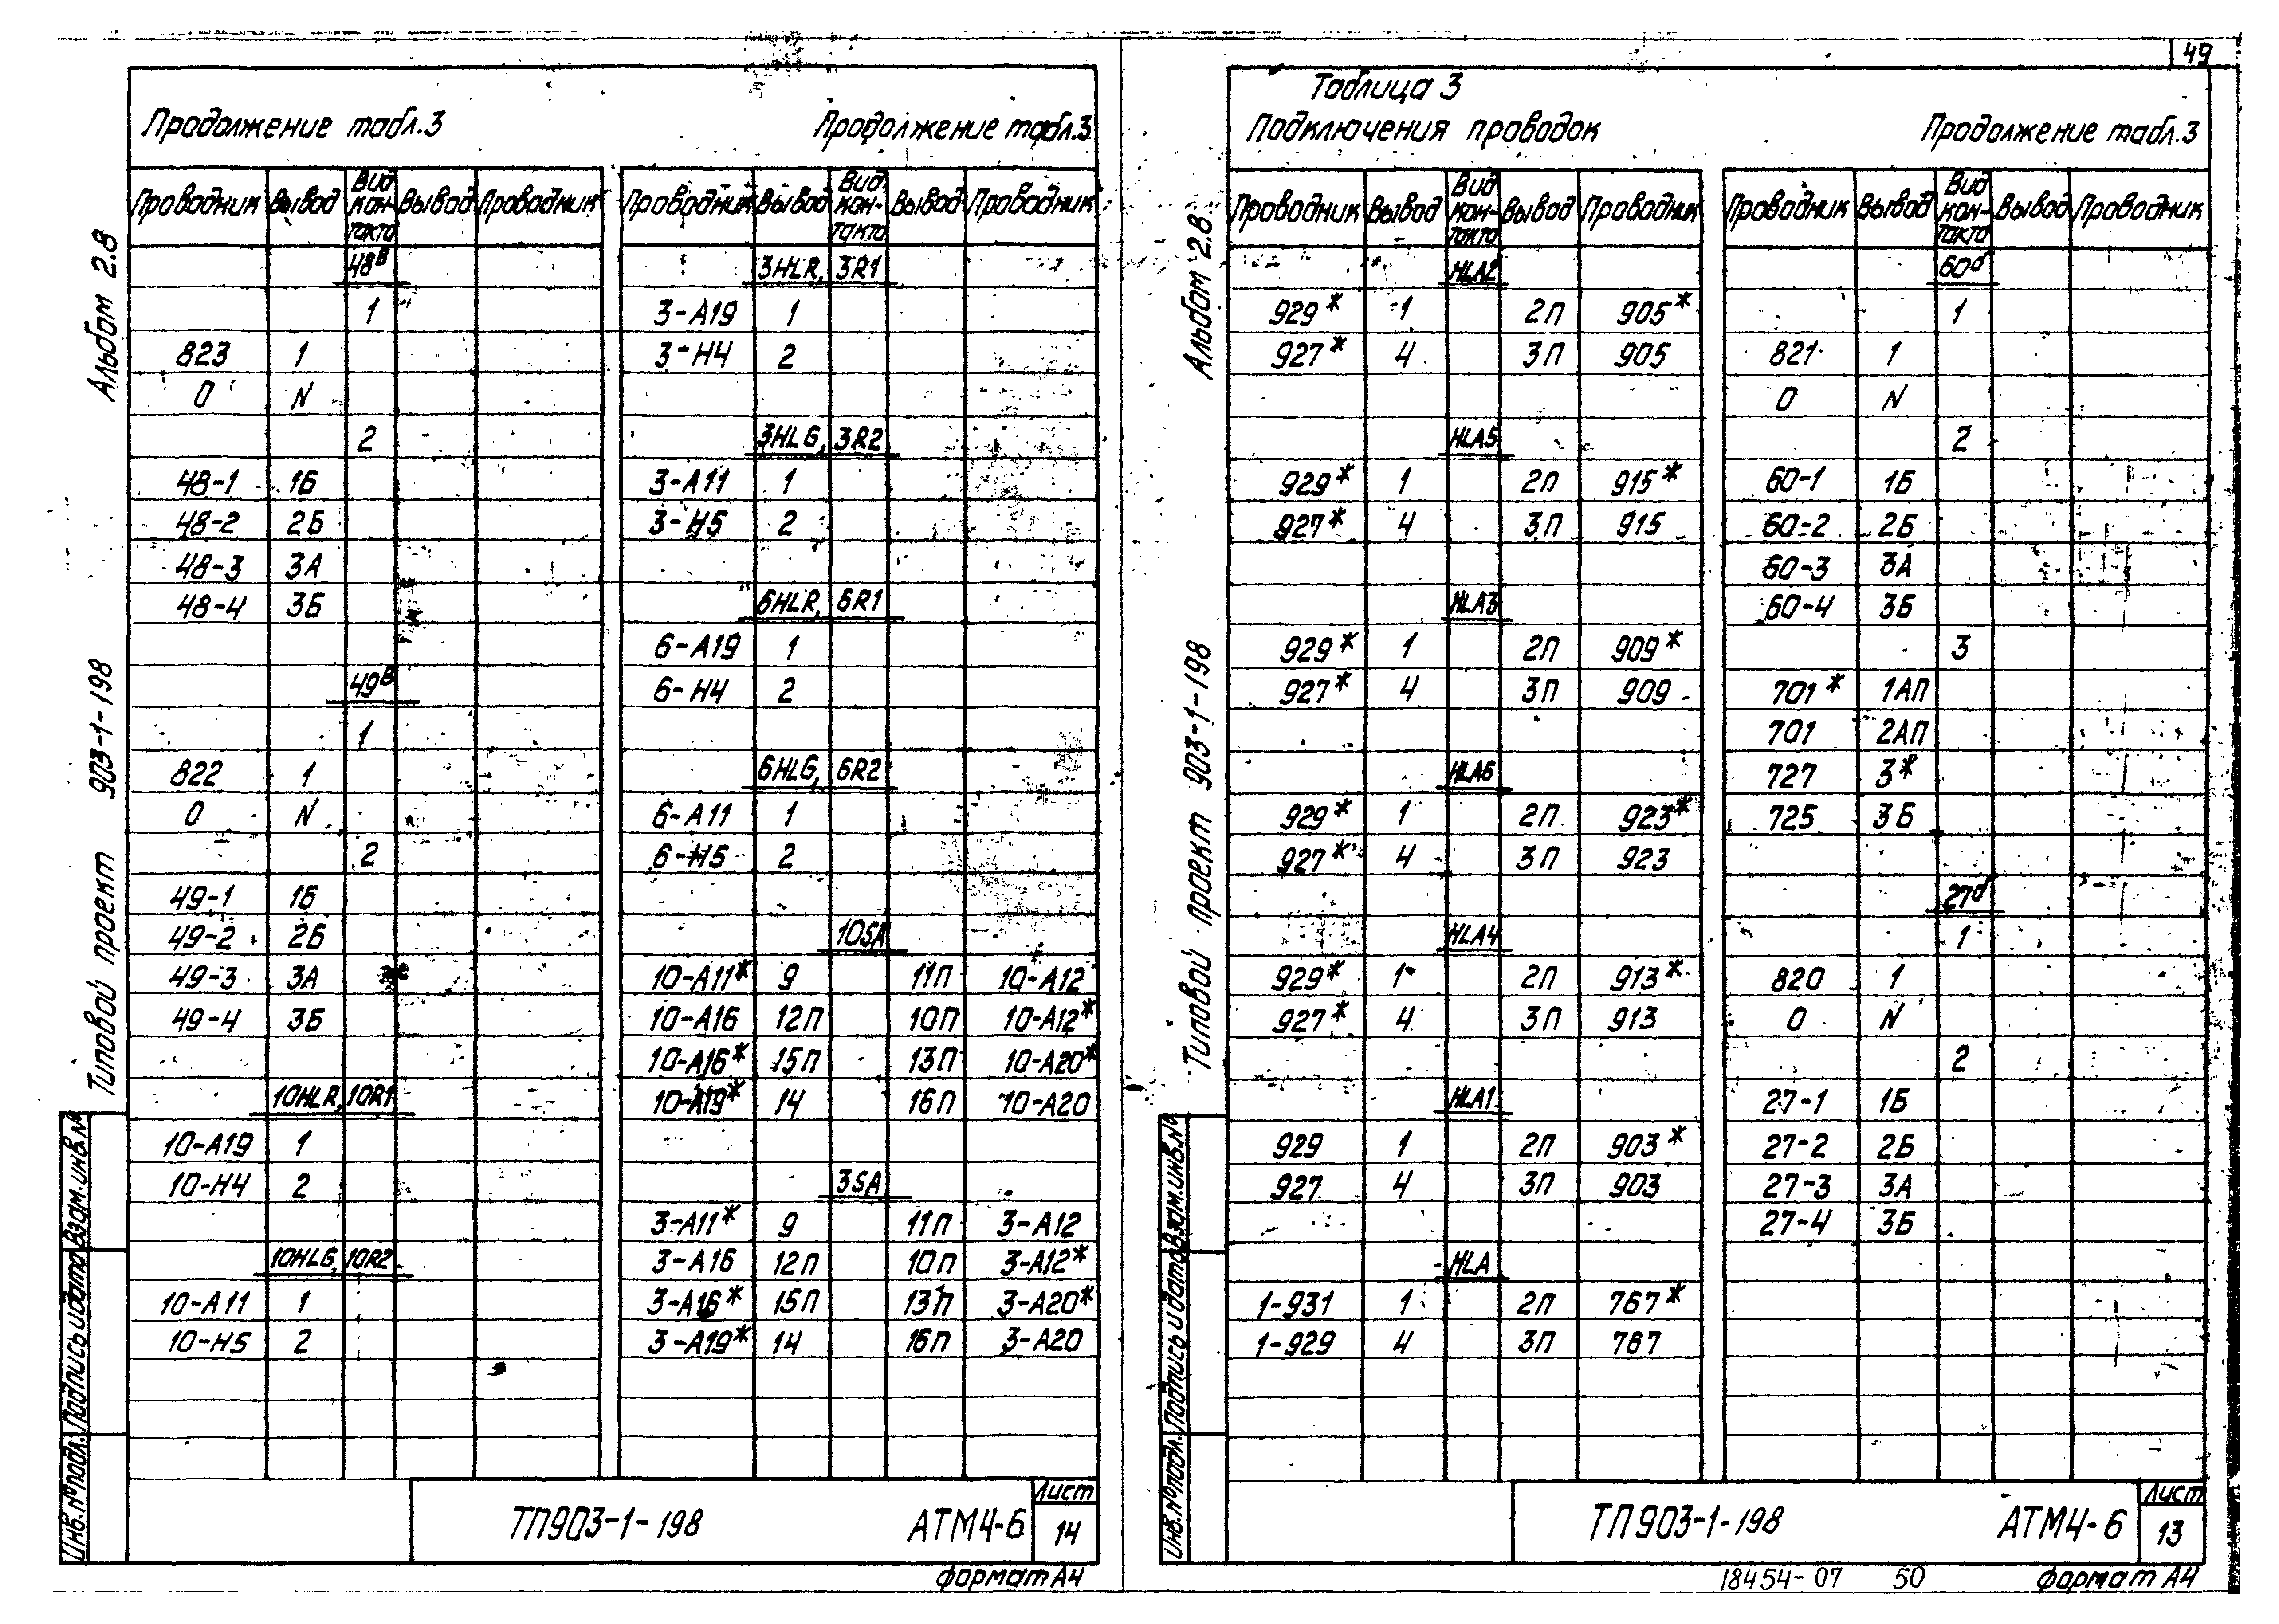 49
Продолжение табл.3
Продолжение табл.3
Проводник Вывод Вид контакта Вывод Проводник
48в
1
823 1
0 N
2
48-1 1Б
48-2 2Б
48-3 3А
48-4 3Б
49в
1
822 1
0 N
2
49-1 1Б
49-2 2Б
49-3 3А
49-4 3Б
10HLR, 10R1
10-А19 1
10-Н4 2
10HLG, 10R2
10-А11 1
10-Н5 2
Проводник Вывод Вид кон-такта Вывод Проводник
3HLR, 3R1
3-А19 1
3-Н4 2
3HLG, 3R2
3-А11 1
3-Н5 2
6HLR, 6R1
6-А19 1
6-Н4 2
6HLG, 6R2
6-А11 1
6-Н5 2
10SA
10-А11* 9 11П 10-А12
10-А16 12П 10П 10-А12*
10-А16* 15П 13П 10-А20*
10-А19* 14 16П 10-А20
3SA
3-А11* 9 11П 3-А12
3-А16 12П 10П 3-А12*
3-А16* 15П 13П 3-А20*
3-А19* 14 16П 3-А20
Альбом 2.8
Типовой проект 903-1-198
Инв.№подл. Подпись и дата Взам.инв.№
ТП903-1-198 АТМ4-6
Лист
14
формат А4
Таблица 3
Подключения проводок
Продолжение табл.3
Проводник Вывод Вид кон-такта Вывод Проводник
HLA2
929* 1 2П 905*
927* 4 3П 905
HLA5
929* 1 2П 915*
927* 4 3П 915
HLA3
929* 1 2П 909*
927* 4 3П 909
HLA6
929* 1 2П 923*
927* 4 3П 923
HLA4
929* 1 2П 913*
927* 4 3П 913
HLA1
929 1 2П 903*
927 4 3П 903
HLA
1-931 1 2П 767*
1-929 4 3П 767
Проводник Вывод Вид кон-такта Вывод Проводник
60б
1
821 1
0 N
2
60-1 1Б
60-2 2Б
60-3 3А
60-4 3Б
3
701* 1АП
701 2АП
727 3*
725 3Б
27б
1
820 1
0 N
2
27-1 1Б
27-2 2Б
27-3 3А
27-4 3Б
Альбом 2.8
Типовой проект 903-1-198
Инв.№подл. Подпись и дата Взам.инв.№
ТП903-1-198 АТМ4-6
Лист
13
18454-07 50
формат А4